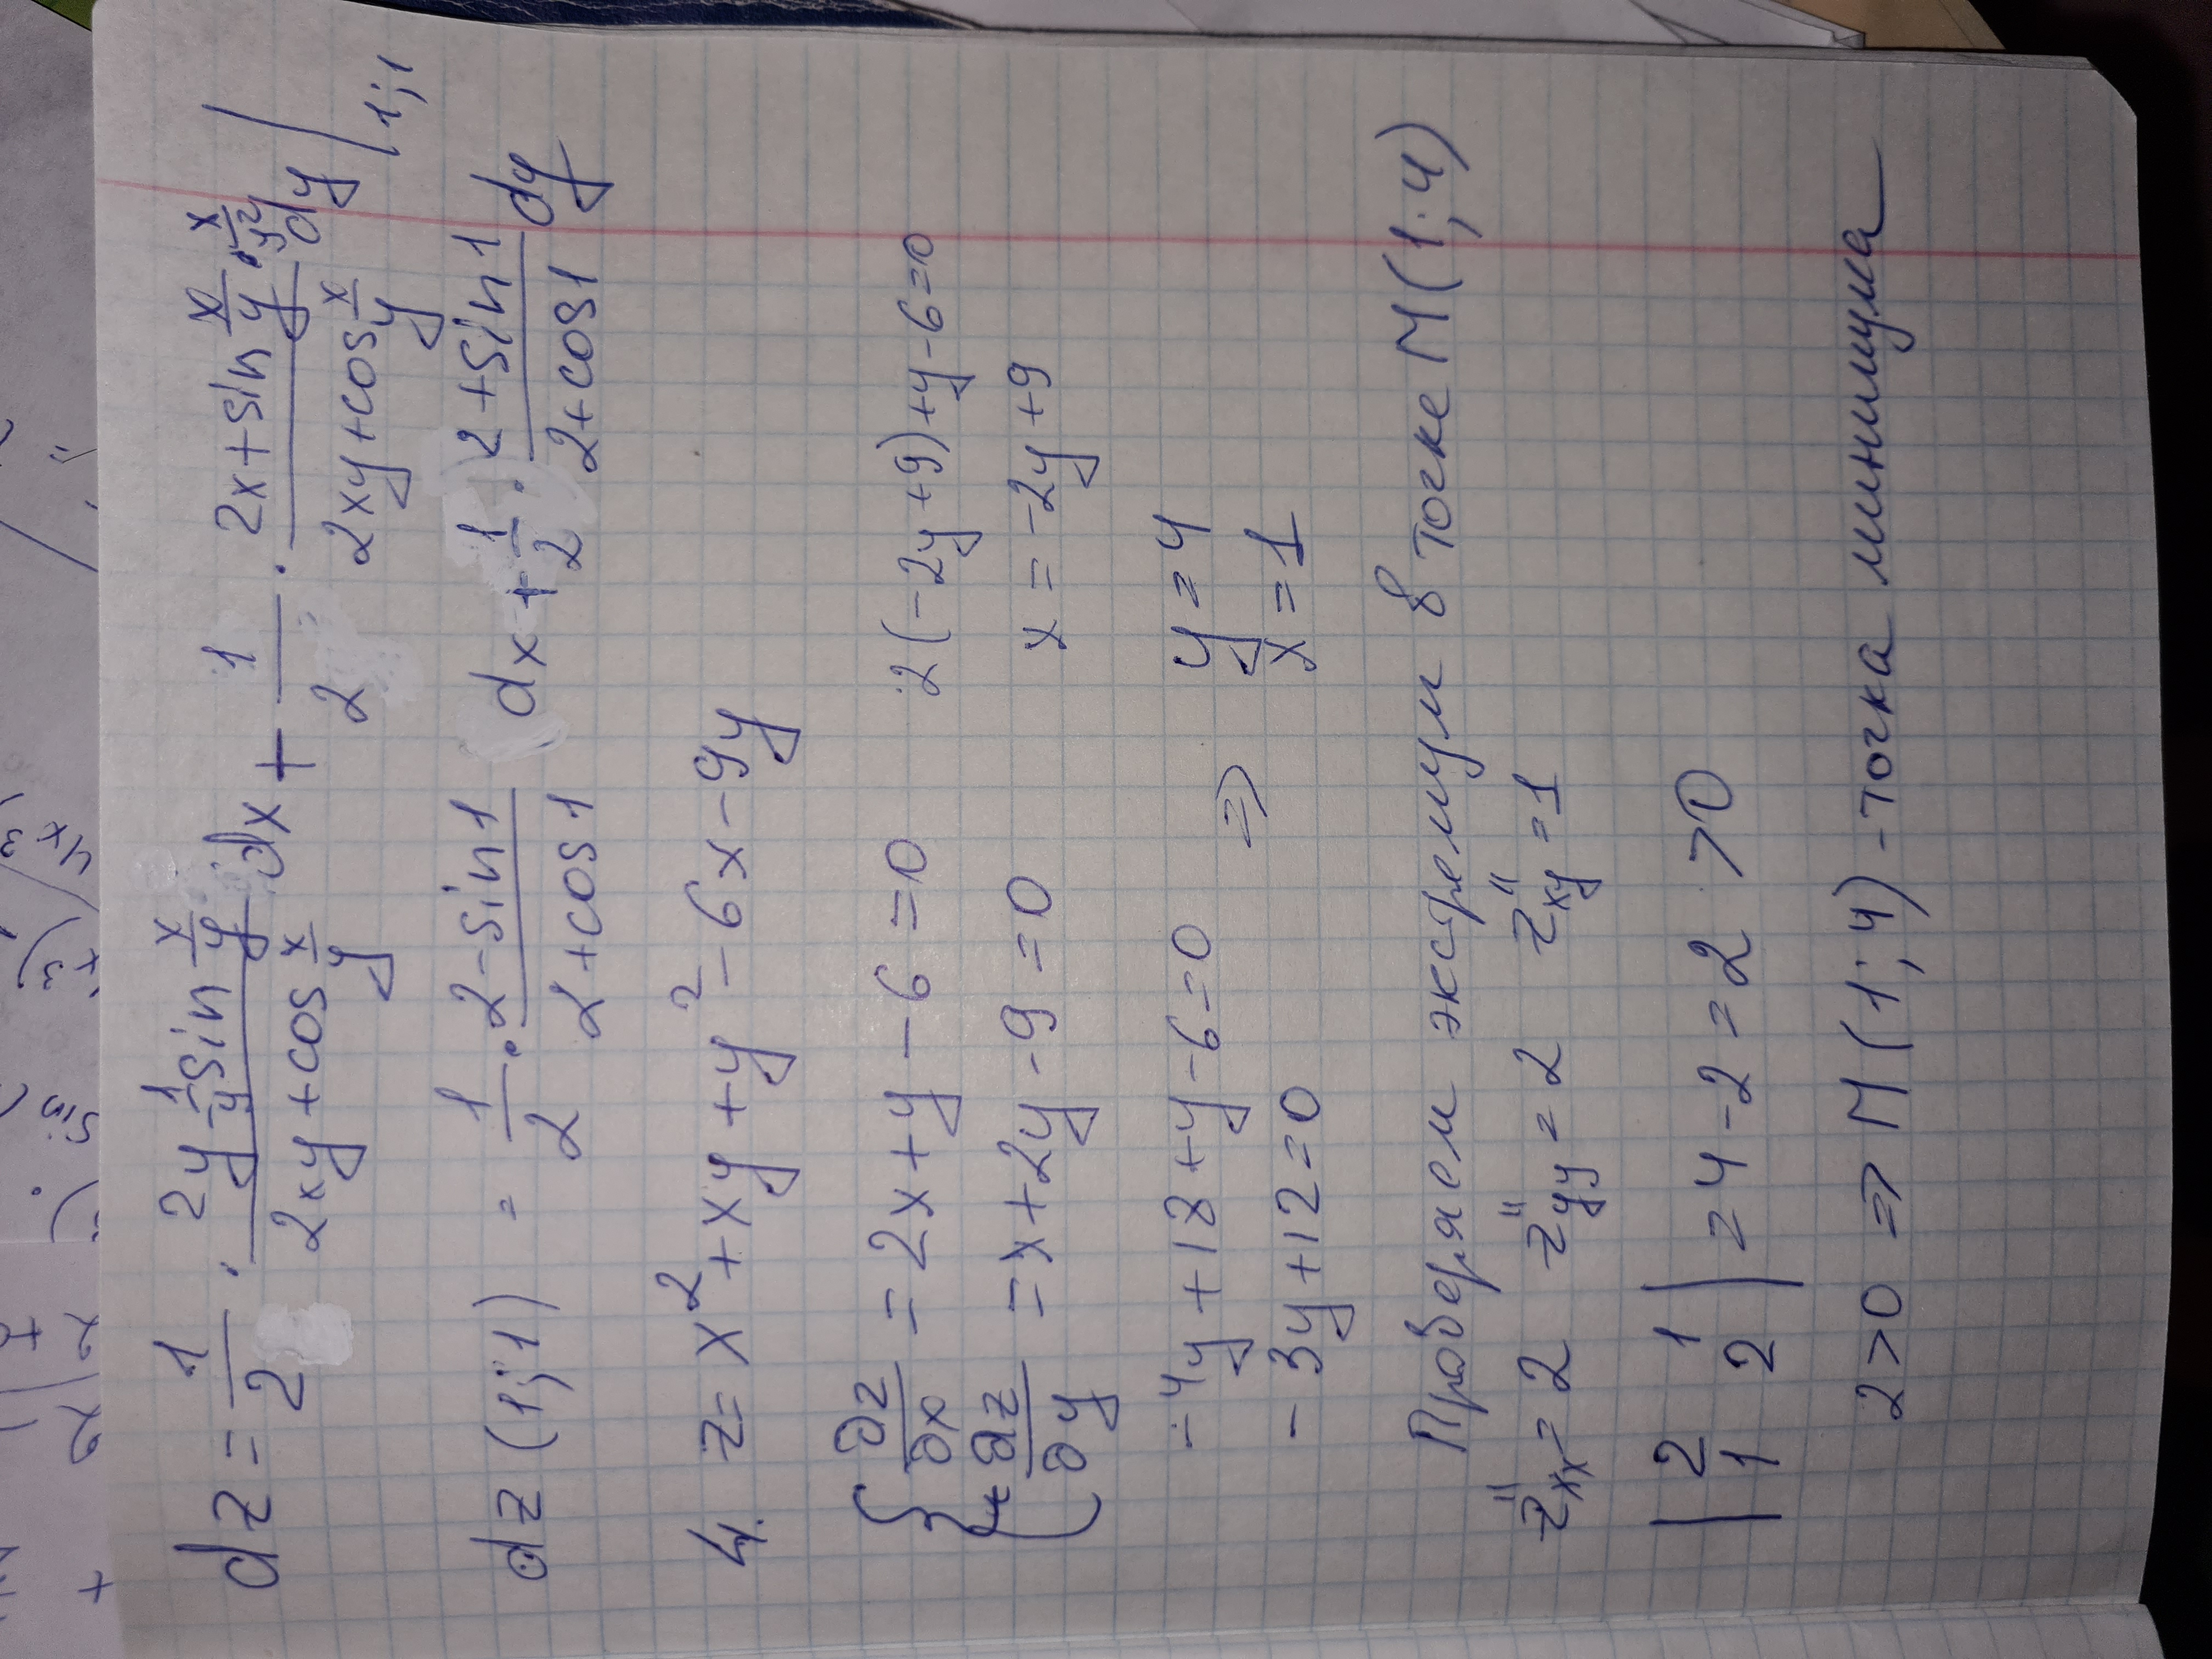 dz = 1/2 · (2y - 1/y sin x/y)/(2xy + cos x/y) dx + 1/2 · (2x + sin x/y · x/y²)/(2xy + cos x/y) dy |1;1
dz (1;1) = 1/2 · (2 - sin1)/(2 + cos1) dx + 1/2 · (2 + sin1)/(2 + cos1) dy
4. z = x² + xy + y² - 6x - 9y
{ ∂z/∂x = 2x + y - 6 = 0 2(-2y + 9) + y - 6 = 0
∂z/∂y = x + 2y - 9 = 0 x = -2y + 9
-4y + 18 + y - 6 = 0 => y = 4
-3y + 12 = 0 x = 1
Проверяем экстремум в точке M(1; 4)
z''xx = 2 z''yy = 2 z''xy = 1
|2 1
1 2| = 4 - 2 = 2 > 0
2 > 0 => M(1; 4) - точка минимума